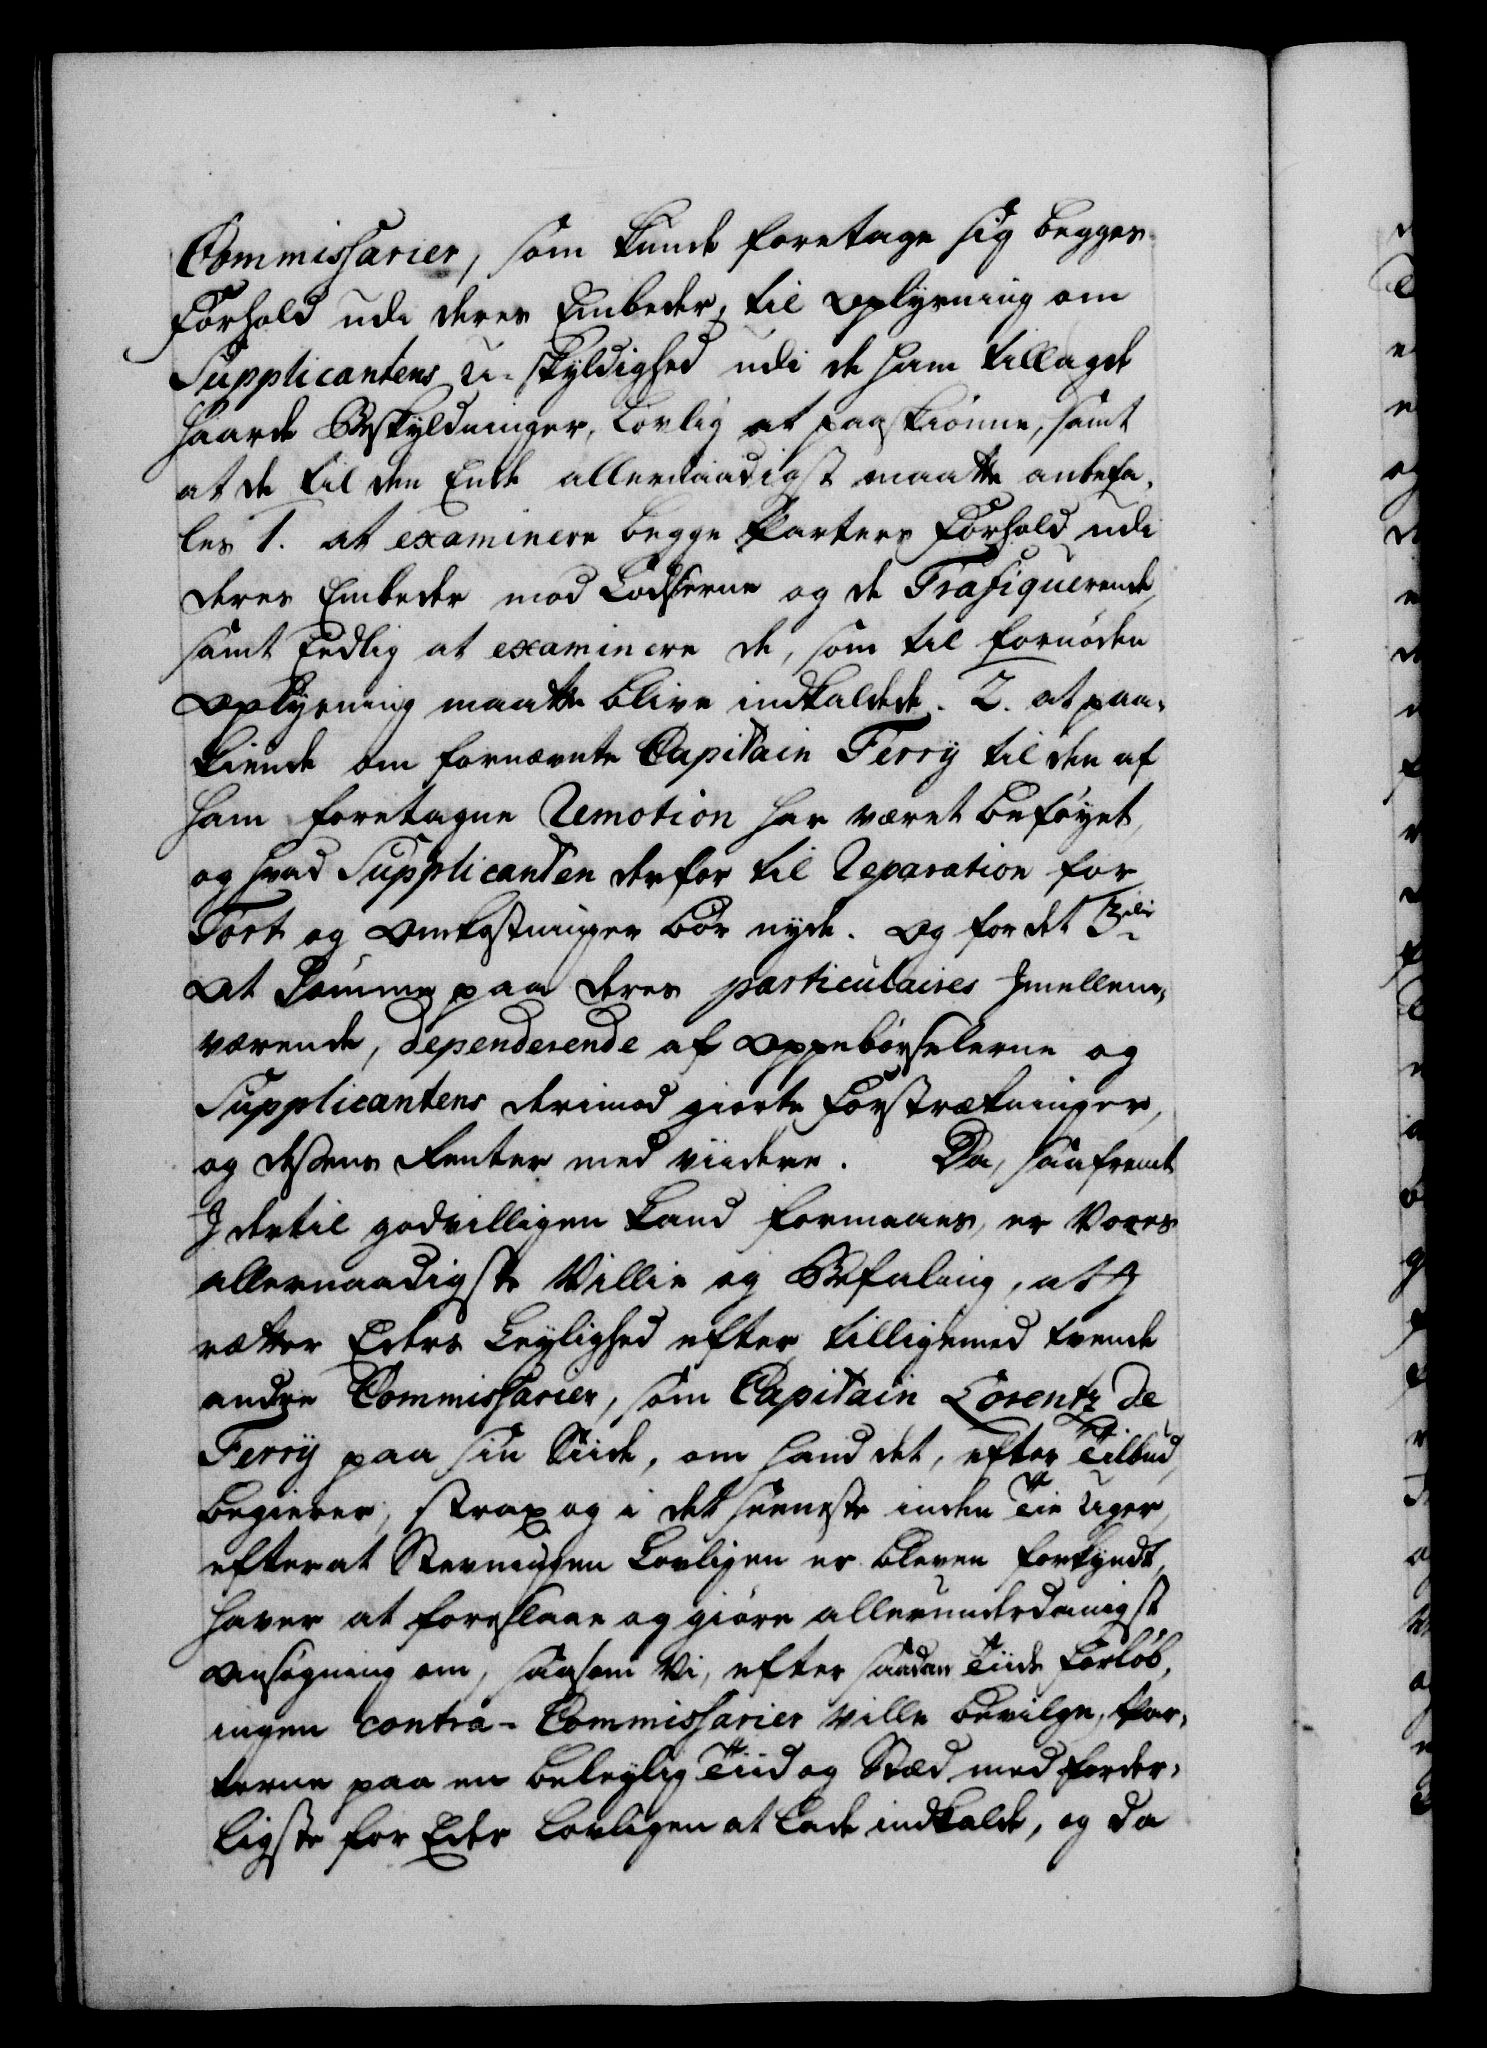 Commissarier, som kunde foretage sig begges
Forhold udi deres Embeder, til oplysning om
Supplicantens U-skyldighed udi de ham tillagde
haarde Beskyldninger, lovlig at paaskiønne, samt
at de til den Ende allernaadigst maatte anbefa-
les 1. at examinere begge Parters Forhold udi
deres Embeder mod Lodserne og de Trafiquerende,
samt Eedlig at examinere de, som til fornøden
oplysning maatte blive indkaldede. 2. at paa-
kiende om fornævnte Capitain Ferrÿ til den af
ham foretagne Remotion har været beføyet,
og hvad Supplicanten derfor til Reparation for
Tort og omkostninger bør nyde. og for det 3die
at dømme paa deres particulaires Imellem-
værende, dependerende af oppebørselerne og
Supplicantens derimod giorte Forstrækninger,
og dessens Renter med viidere. Da, saafremt
I dertil godvilligen kand formaaes, er Vores
allernaadigste Villie og Befaling, at I
retter Eders Leylighed efter, tilligemed tvende
andre Commissarier, som Capitain Lorentz de
Ferrÿ paa sin Siide, om hand det, efter Tilbud,
begierer, strax og i det seeneste inden Tie Uger,
efter at Stevningen Lovligen er bleven forkyndt,
haver at foreslaae og giøre allerunderdanigst
ansøgning om, saasom Vi, efter saadan Tiids Forløb,
ingen contra-Commissarier ville bevilge, Par-
terne paa en beleylig Tiid og Stæd med forder-
ligste for Eder Lovligen at lade indkalde, og da